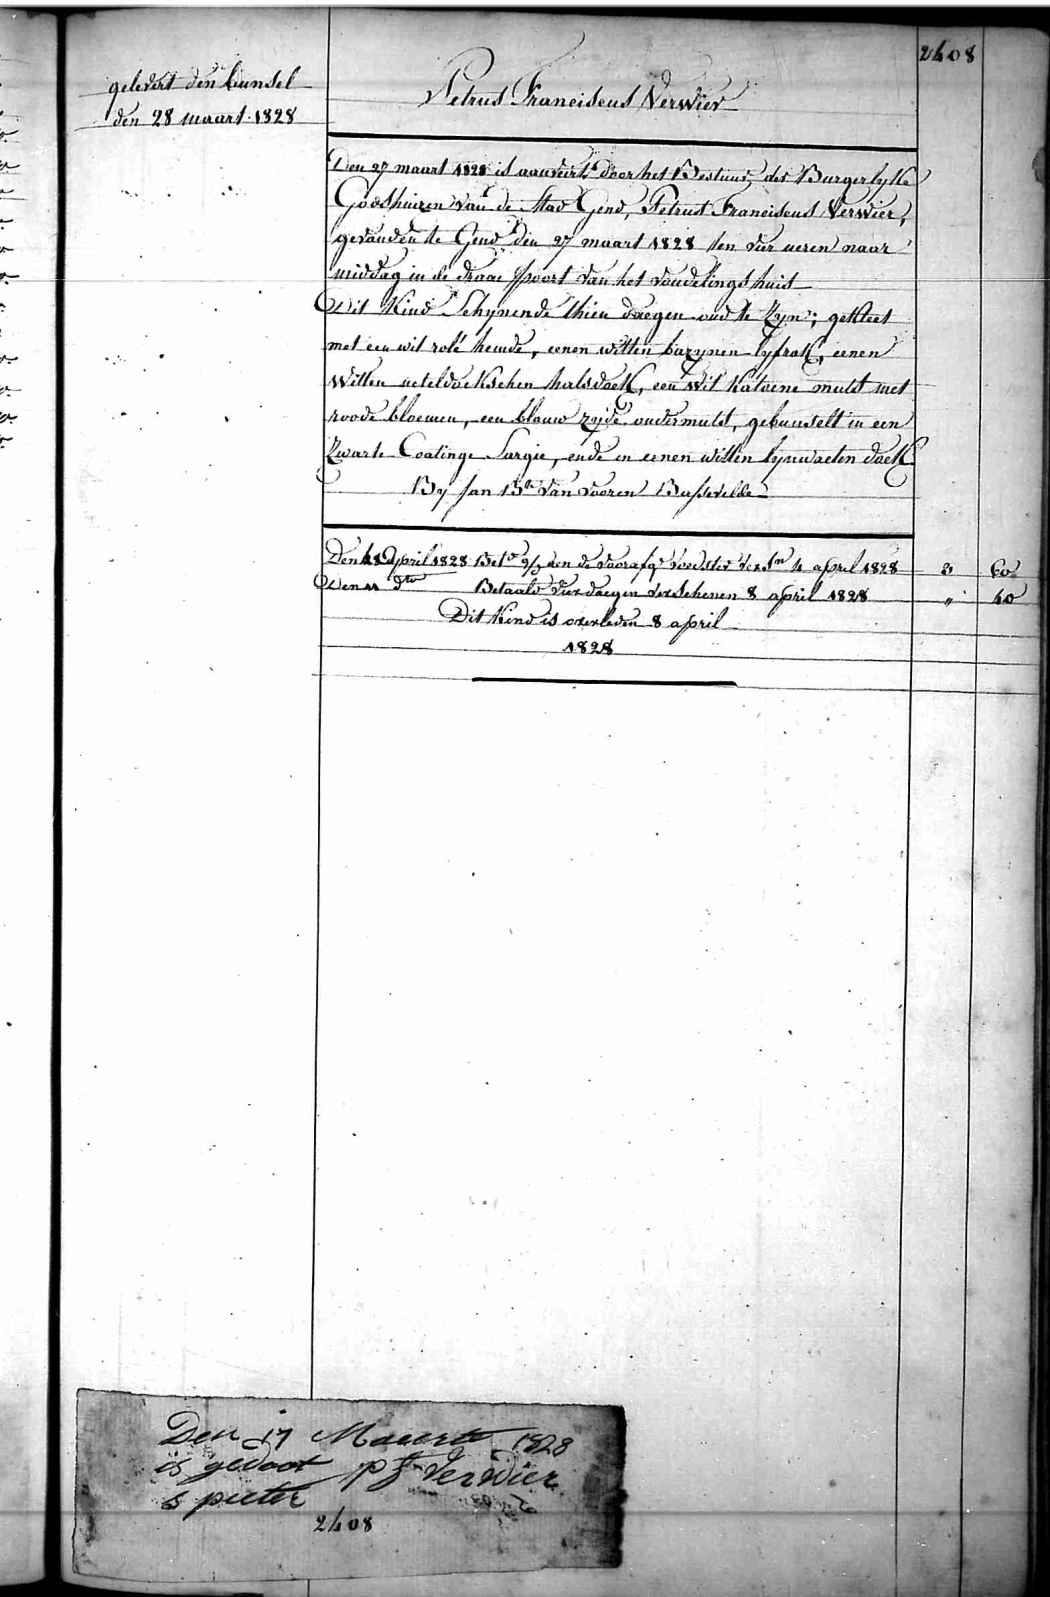 2408
gelevert den bunsel
den 28 maart 1828
Petrus Franciscus Verwier
Den 27 maart 1828 is aanveirt door het Bestuur der Burgerlyke
Godshuizen van de Stad Gend, Petrus Franciscus Verwier,
gevonden te Gend den 27 maart 1828 ten vier ueren naar
middag in de draae Poort van het vondelingshuis
Dit Kind Schynende thien daegen oud te Zyn; gekleet
met een wit rolé hemde, eenen witten bazynen lyfrok, eenen
Witten neteldoekschen halsdoek, een wit Katoene muts met
roode bloemen, een blauw zyde ondermuts, gebunselt in een
Zwarte Coatinge Sargie, ende in eenen witten lynwaeten doek
By Jan Bte Van Vooren Bassevelde
Den 18 April 1828 Bet. den de voorafg. voedster versn 4 april 1828 2 60
Den 11 dto Betaald vier daegen verschenen 8 april 1828 " 40
Dit Kind is overleden 8 april
1828
Den 17 Maeerte 1828
is gedoot pf Verwier
s pieter
2408